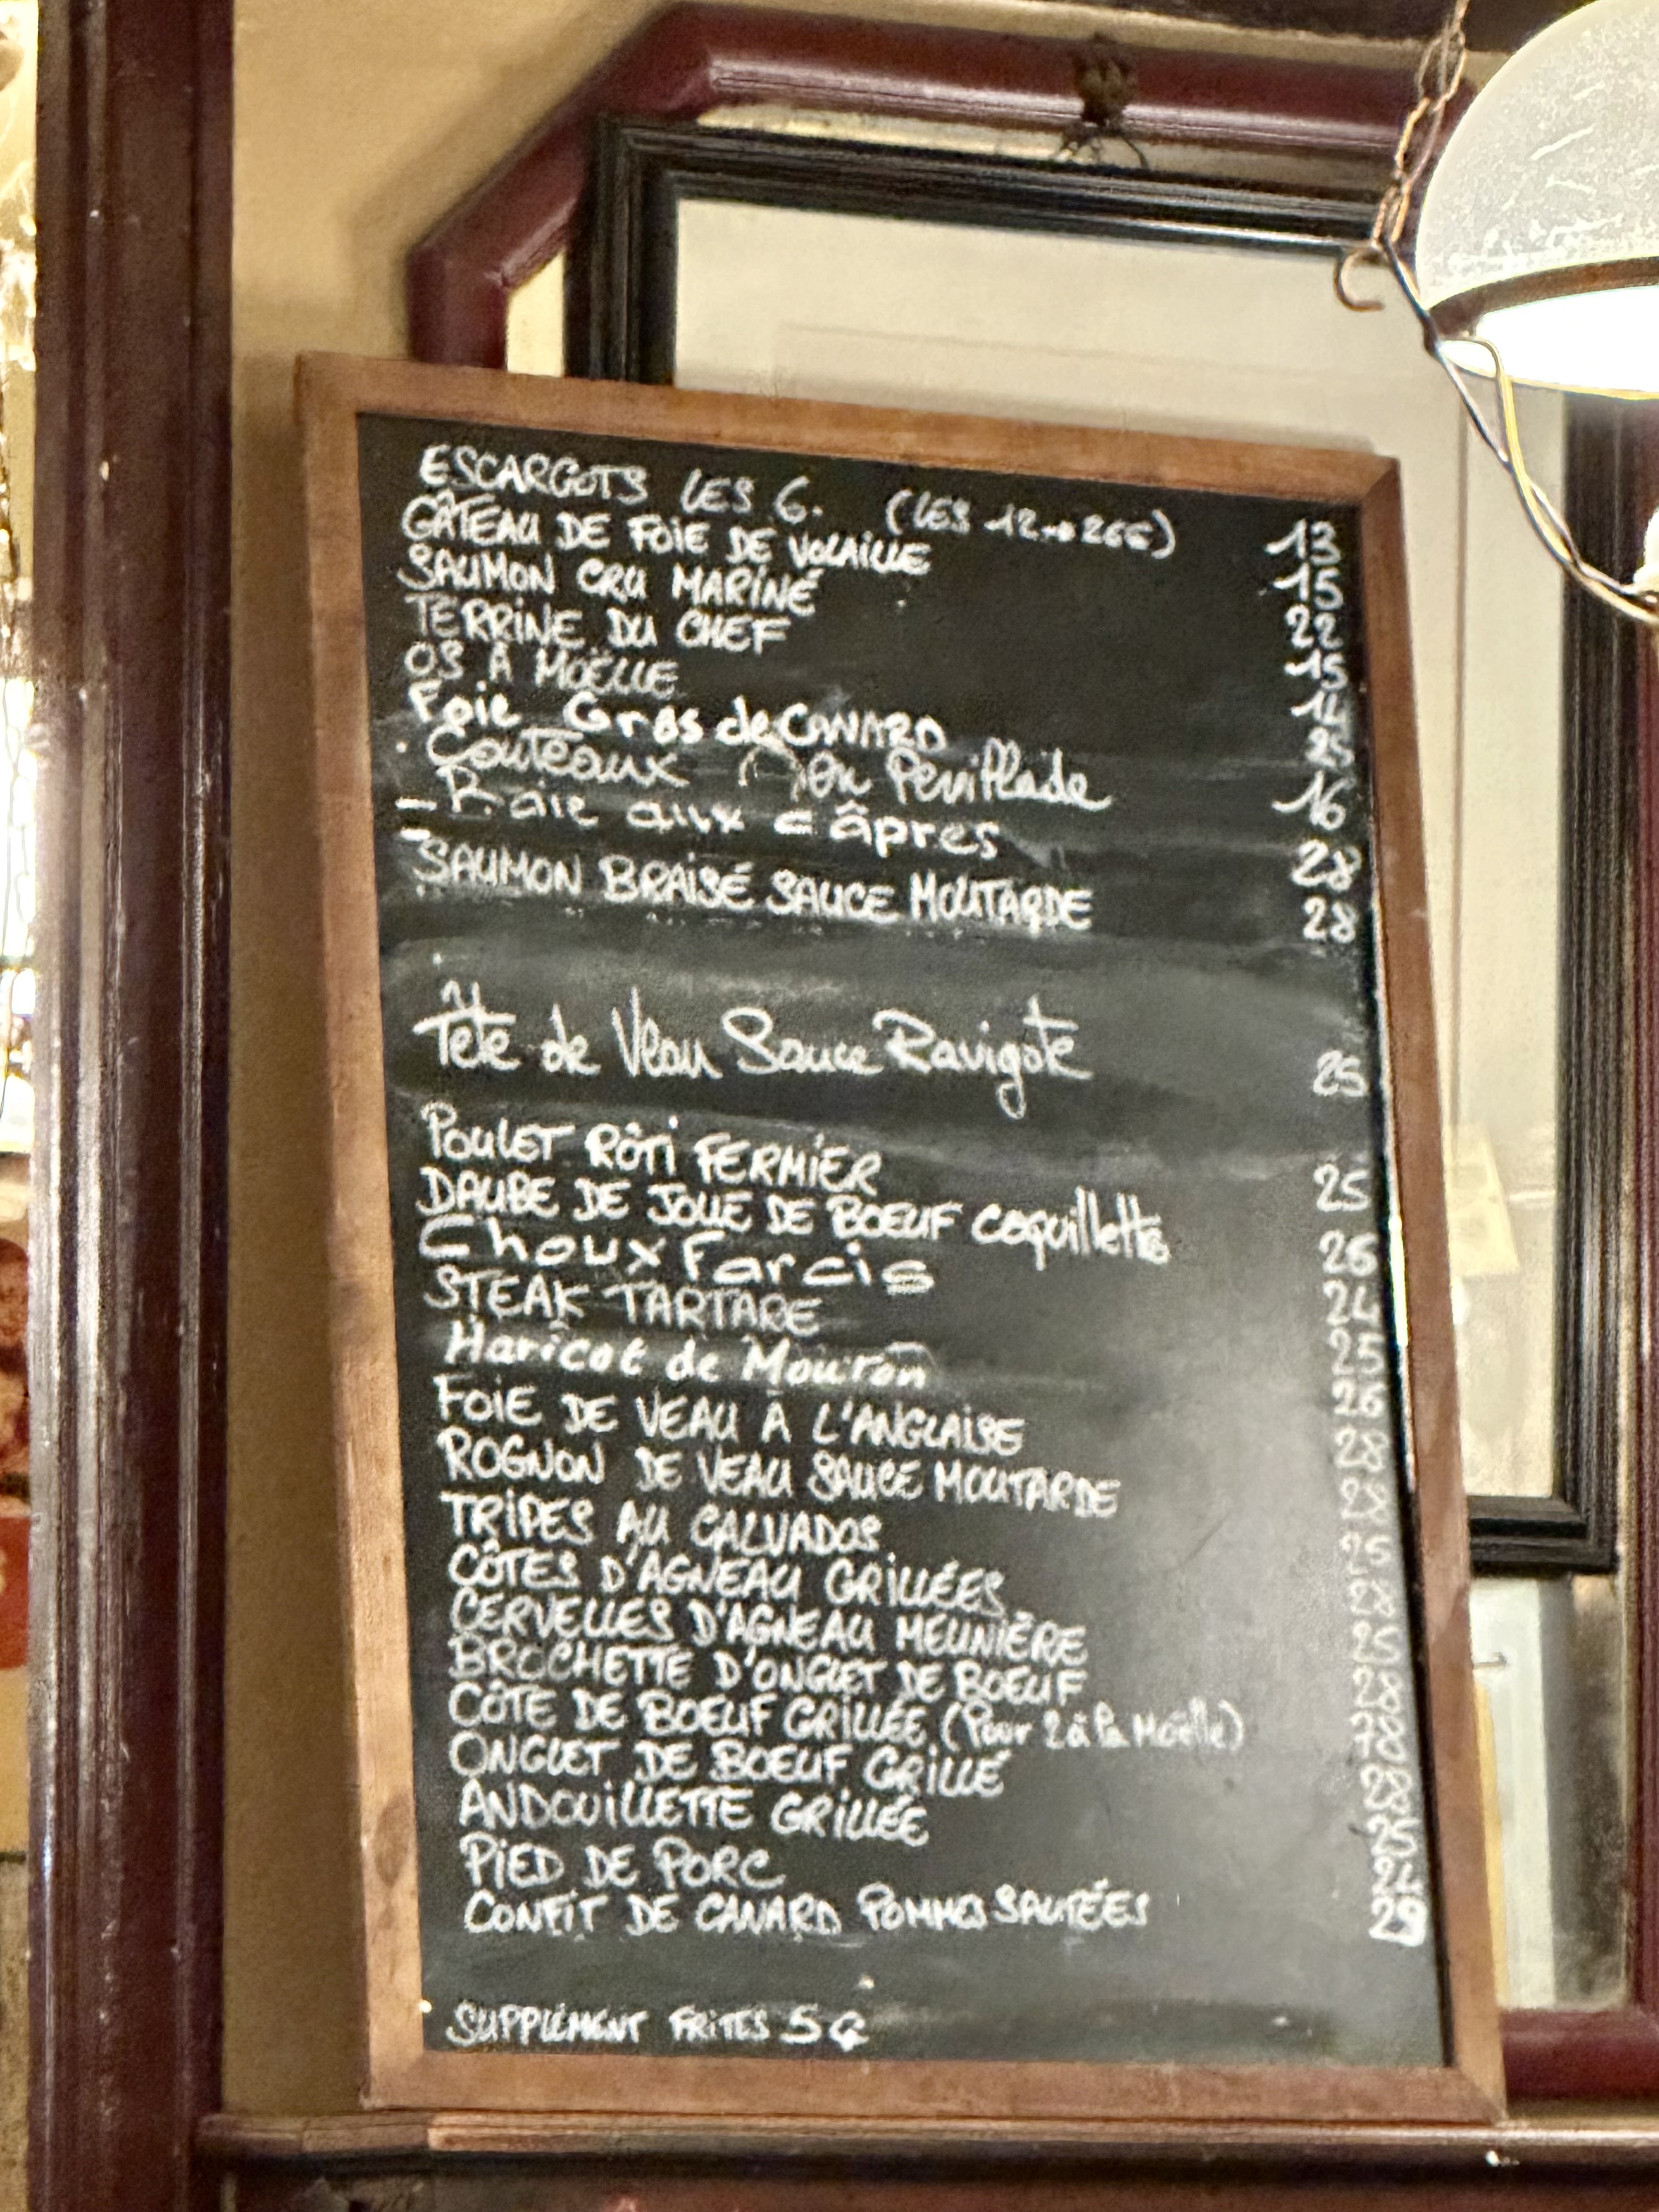 ESCARGOTS LES 6. (LES 12 → 26€) 13
GÂTEAU DE FOIE DE VOLAILLE 15
SAUMON CRU MARINÉ 22
TERRINE DU CHEF 15
OS À MOËLLE 14
Foie Gras de CANARD 25
Couteaux en Persillade 16
- Raie aux câpres 28
- SAUMON BRAISÉ SAUCE MOUTARDE 28
Tête de Veau Sauce Ravigote 25
POULET RÔTI FERMIER 25
DAUBE DE JOUE DE BOEUF coquillettes 26
Choux Farcis 24
STEAK TARTARE 25
Haricot de Mouton 26
FOIE DE VEAU À L'ANGLAISE 28
ROGNON DE VEAU SAUCE MOUTARDE 28
TRIPES AU CALVADOS 25
CÔTES D'AGNEAU GRILLÉES 28
CERVELLES D'AGNEAU MEUNIÈRE 25
BROCHETTE D'ONGLET DE BOEUF 28
CÔTE DE BOEUF GRILLÉE (Pour 2 à la Moëlle) 78
ONGLET DE BOEUF GRILLÉ 28
ANDOUILLETTE GRILLÉE 25
PIED DE PORC 24
CONFIT DE CANARD POMMES SAUTÉES 29
SUPPLÉMENT FRITES 5€